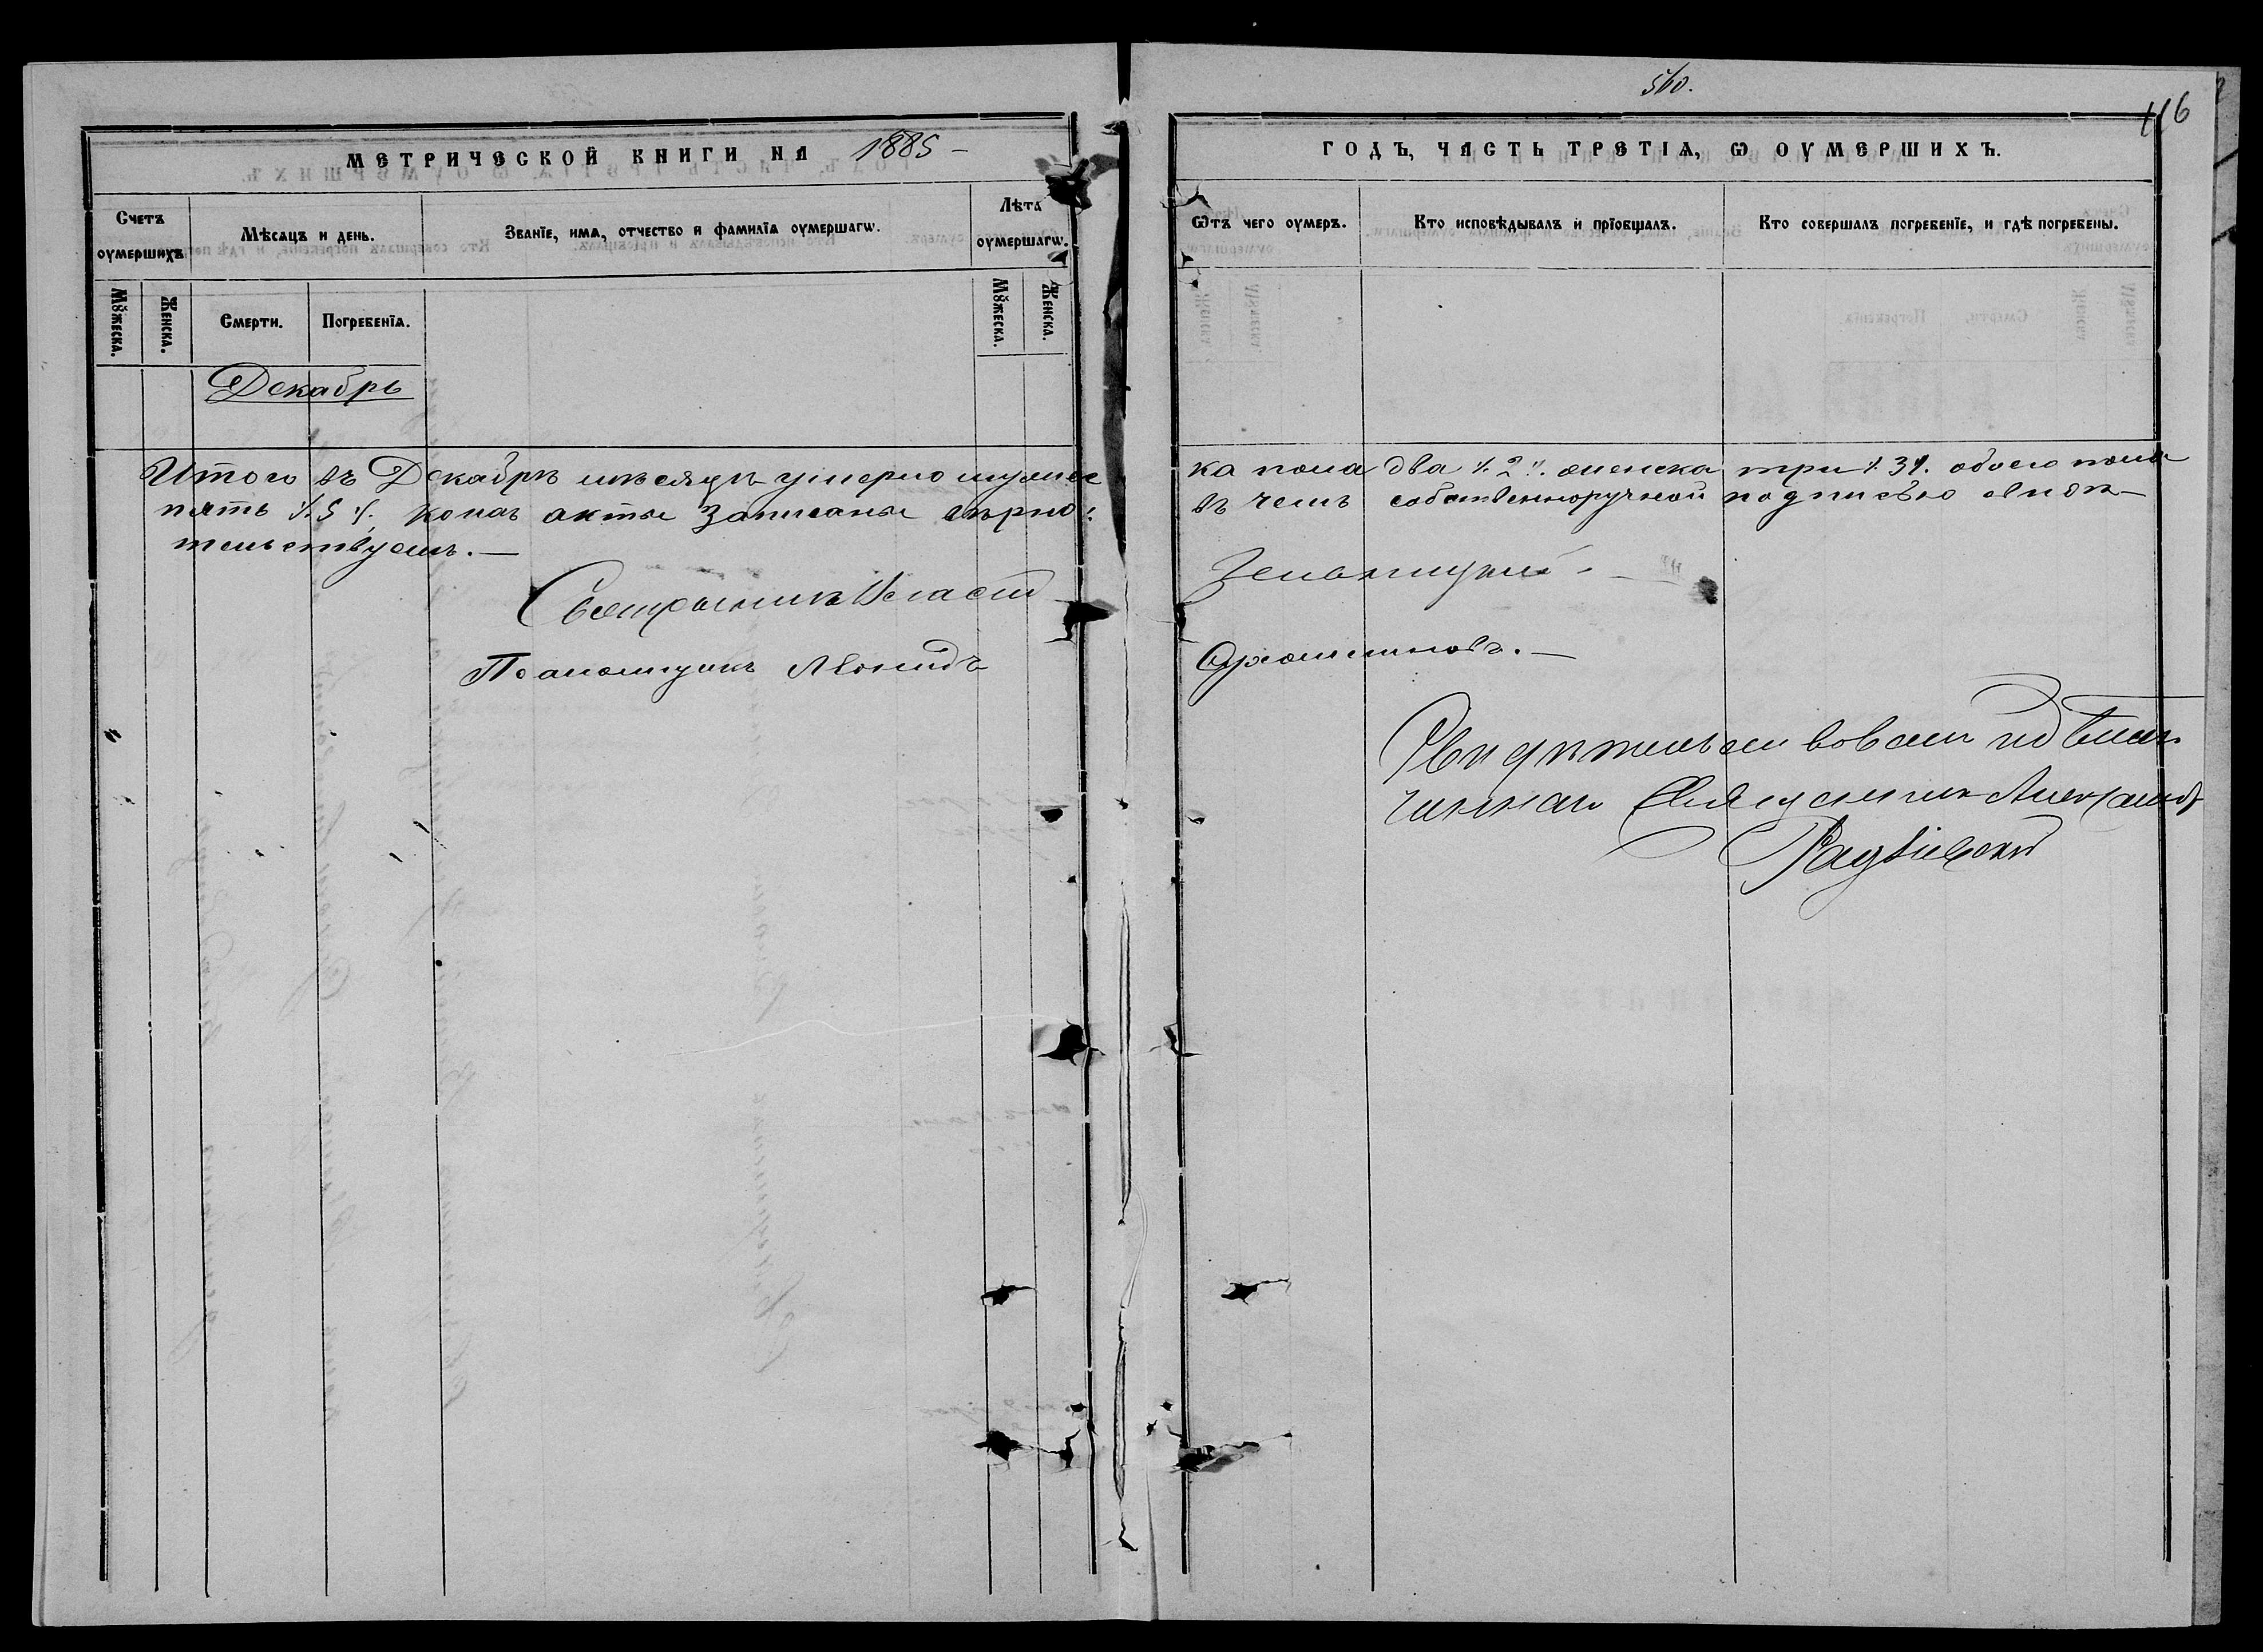 560.
116
МЕТРИЧЕСКОЙ КНИГИ НА 1885 -
ГОДЪ, ЧАСТЬ ТРЕТІѦ, Ѡ ОУМЕРШИХЪ.
Счетъ оумершихъ
Мѣсѧцъ и день.
Званїе, имѧ, отчество и фамилїѧ оумершагѡ.
Лѣта оумершагѡ.
Ѿтъ чего оумеръ.
Кто исповѣдывалъ и прїобщалъ.
Кто совершалъ погребенїе, и гдѣ погребены.
Мꙋжеска.
Женска.
Смерти.
Погребенїѧ.
Мꙋжеска.
Женска.
Декабрь
Итого въ Декабрѣ мѣсяцѣ умерло мужес
ка пола два /.2./. женска три /.3./. обоего пола
пять /.5./. коихъ акты записаны вѣрно:
въ чемъ собственноручною подписью свидѣ-
тельствуемъ.-
Священникъ
Поаломщикъ Леонидъ
Свидѣтельствовалъ
Священникъ